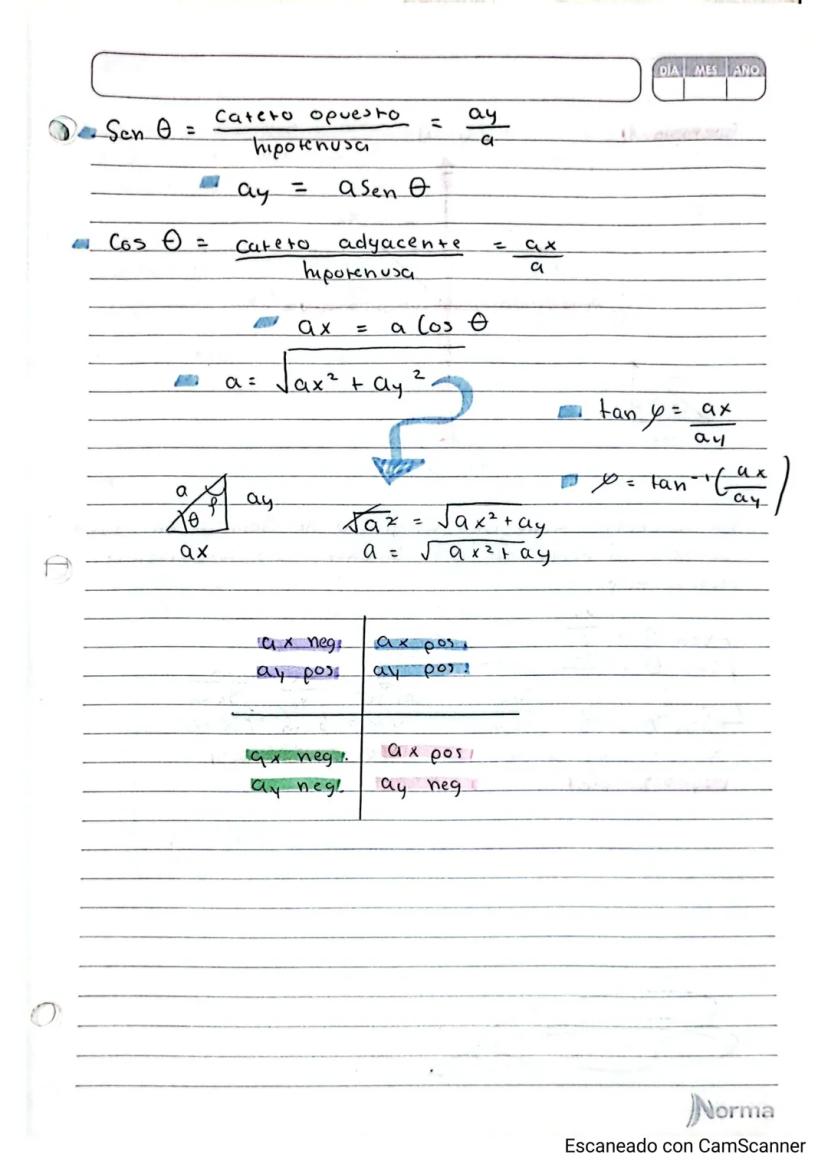 DÍA MES AÑO
Sen θ = cateto opuesto / hipotenusa = ay / a
ay = a Sen θ
Cos θ = cateto adyacente / hipotenusa = ax / a
ax = a Cos θ
a = √ax² + ay²
tan φ = ax / ay
φ = tan⁻¹ (ax / ay)
a φ ay
θ
ax
√a² = √ax² + ay
a = √ax² + ay
ax neg. ax pos.
ay pos. ay pos.
ax neg. ax pos
ay neg. ay neg
Norma
Escaneado con CamScanner